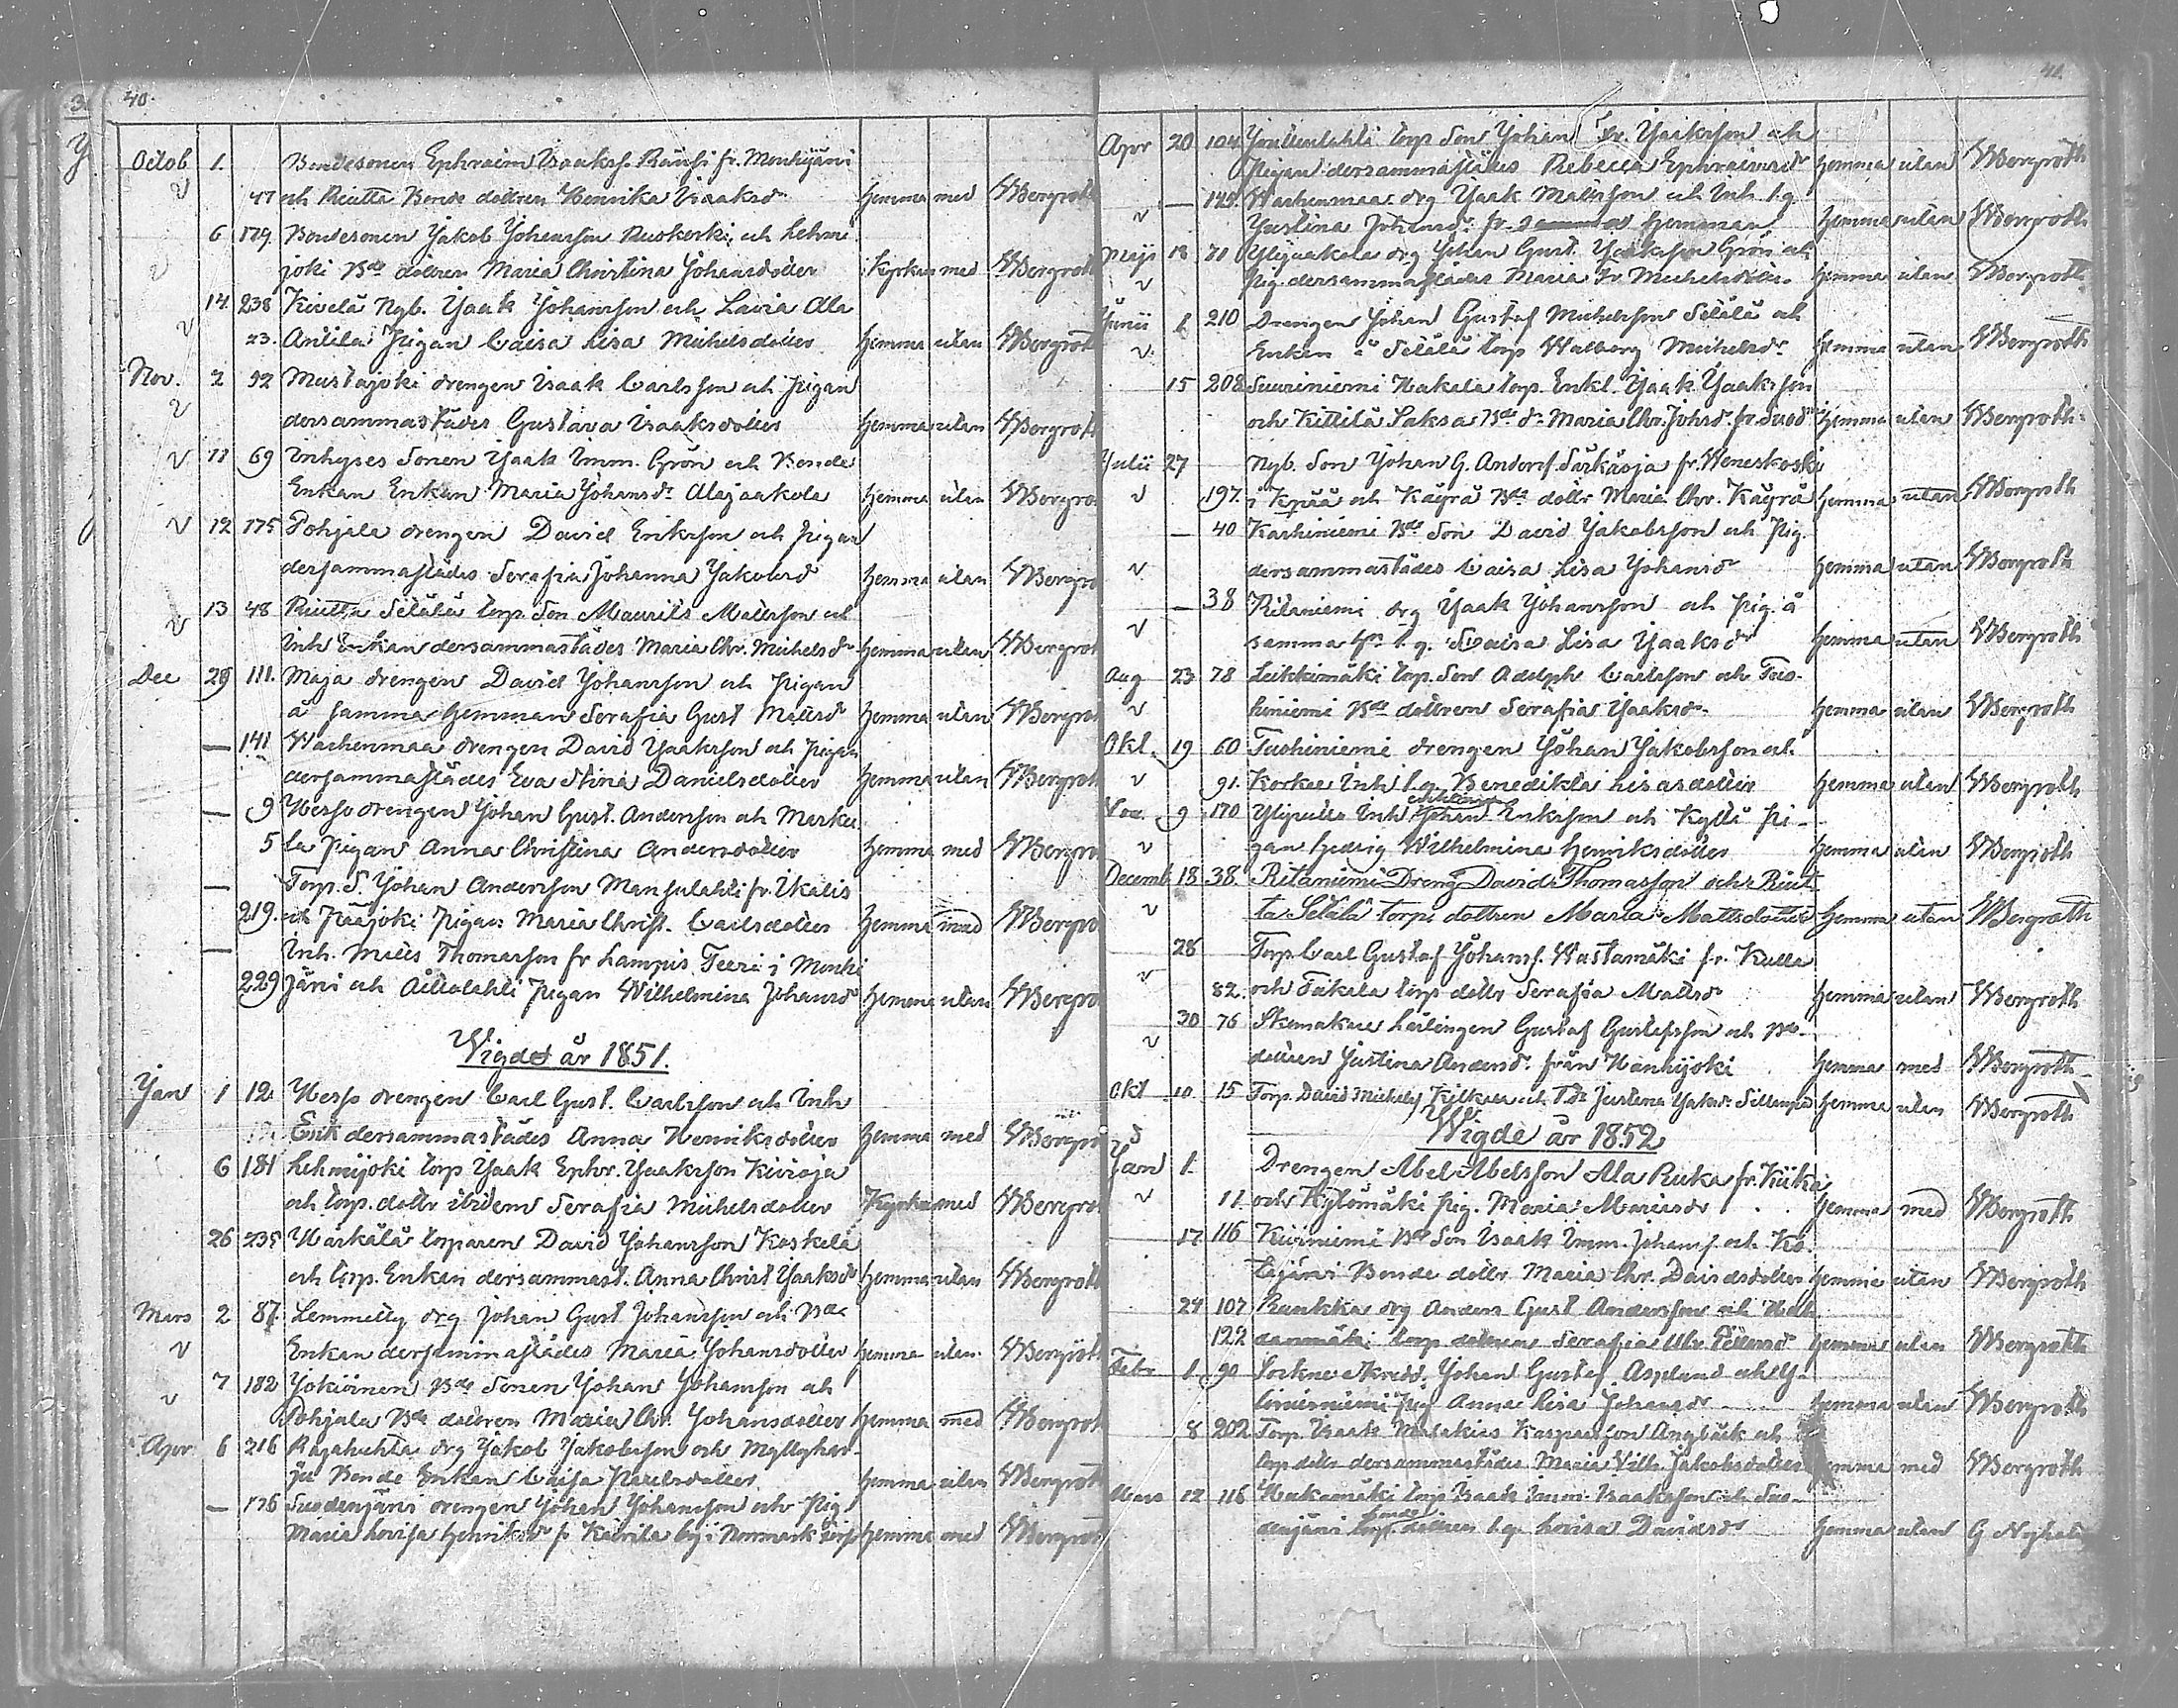 40.
Octob 1. Bondesonen Ephraim Isaaksf. Rausi fr. Monhijärvi
47 och Riutta Bonde dottren Henrika Isaaksdr hemma med WBergroth
6 179 Bondesonen Jakob Johansson Ruokoski och Lehmi
joki Bde dottren Maria Christina Johansdotter Kyrkan med WBergroth
14. 238 Kivelä Nyb. Isaak Johansson och Lavia Ala
23. Antila Pigan Caisa Lisa Michelsdotter hemma utan WBergroth
Nov. 2 92 Mustajoki drengen Isaak Carlsson och pigan
dersammastädes Gustava Isaaksdotter hemma utan WBergroth
11 69 Inhyses Sonen Isaak Imm. Grön och Bonde
Enkan Enkan Maria Johansdr Alajaakola hemma utan WBergro
12 175 Pohjala drengen David Eriksson och pigan
dersammastädes Serafia Johanna Jakobsd hemma utan WBergro
13 48 Riutta Sëtälä torp. Son Maurits Mattsson och
Inh Enkan dersammastädes Maria Chr. Michelsdr hemma utan WBergrot
Dec 29 111. Maja drengen David Johansson och pigan
å samma hemman Serafia Gust Mattsdr hemma utan WBergrot
— 141 Wachenmaa drengen David Isaaksson och pigan
dersammastädes Eva Stina Danielsdotter hemma utan WBergroth
— 9 Hesso drengen Johan Gust. Andersson och Marku
5 la pigan Anna Christina Andersdotter hemma med WBergro
— Torp. S. Johan Andersson Mansulahti fr. Ikalis
219. och Pääjoki pigan Maria Christ. Carlsdotter hemma med WBergro
— Inh. Matts Thomasson fr Lampis Teeri i Monhi
229 järvi och pigan Wilhelmina Johansdr hemma utan WBergro
Wigde år 1851.
Jan 1 12 Hesso drengen Carl Gust. Carlsson och Inh
Enk dersammastädes Anna Henriksdotter hemma med WBergro
6 181 Lehmijoki torp Isaak Ephr. Isaaksson Kivioja
och torp. dottr ibidem Serafia Michelsdotter Kyrkan med WBergrot
26 235 Harkälä torparen David Johansson Koskela
och torp. Enkan dersammast. Anna Christ Isaaksdr hemma utan WBergroth
Mars 2 87. Lemmetty drg Johan Gust Johansson och Bde
Enkan dersammastädes Maria Johansdotter hemma utan WBergroth
7 182 Jokioinen Bde Sonen Johan Johansson och
Pohjala Bde dottren Maria Chr. Johansdotter hemma med WBergrot
Apr 6 216 Rajahuhta drg Jakob Jakobsson och Myllyhar-
ju Bonde Enkan Caisa Paulsdotter hemma utan WBergrot
— 176 Suodenjärvi drengen Johan Johansson och Pig.
Maria Lovisa Henriksdr fr Kairila by i Normark hemma med WBergrot
41.
Apr 20 104 torp Son Johan Fr. Isaaksson och
Pigan dersammastädes Rebecca Ephraimsdr hemma utan WBergroth
— 142 Wachenmaa drg Isaak Mattsson och Inh. l.q
Justina Johansdr fr samma hemman hemma utan WBergroth
Maji 18 70 Ylijaakola drg Johan Gust. Isaaksson Grön och
Pig dersammastädes Maria Fr Michelsdotter hemma utan WBergroth
Junii 1 210 Drengen Johan Gustaf Michelsson Sëtälä och
Enkan å Sëtälä torp Walborg Michelsdr hemma utan WBergroth
15 208 Suuriniemi Hakala torp. Enkl. Isaak Isaaksson
och Kittilä Saksa Bde dr Maria Chr. Johsdr fr. Suod hemma utan WBergroth
Julii 27 Nyb. Son Johan G. Andersf. Särkioja fr. Weneskoski
197. i och Käyrä Bde dottr Maria Chr. Käyrä hemma utan WBergroth
— 40 Karhiniemi Bde Son David Jakobsson och Pig.
dersammastädes Caisa Lisa Johansdr hemma utan WBergroth
— 38 Ritaniemi drg Isaak Johansson och pig. å
samma hn l.q. Caisa Lisa Isaaksdr hemma utan WBergroth
Aug 23 78 Leikkimäki torp. Son Adolph Carlsson och Tuo-
hiniemi Bde dottren Serafia Isaaksdr hemma utan WBergroth
Okt. 19 60 Tuohiniemi drengen Johan Jakobsson och
91. Korkee Inh l.q. Benedikta Lisasdotter hemma utan WBergroth
Nov. 9 170 Inh Johan Eriksson och Kyllä pi-
gan Hedvig Wilhelmina Henriksdotter hemma utan WBergroth
Decemb 18 38. Ritaniemi Dreng David Thomasson och Riut
ta Sëtälä torps dottren Maria Mattsdotter hemma utan WBergroth
28 Torp Carl Gustaf Johansf. Wastamäki fr. Kulla
82. och Takala torp dottr Serafia Mattsdr hemma utan WBergroth
30 76 Skomakare lärlingen Gustaf Gustafsson och Bde
dottren Justina Andersdr från Honkijoki hemma med WBergroth
Okt 10 15 Torp. David Michelsf Kilkkaa och T.dr Justina Jakobsdr Sillanpää hemma utan WBergroth
Wigde år 1852
Jan 1. Drengen Abel Abelsson Ala Ruka fr. Kiika
11. och Kylömäki pig. Maria Mariasdr hemma med WBergroth
17 116 Kiviniemi Bde Son Isaak Imm. Johansf. och Ko-
Bonde dottr. Maria Chr. Davidsdotter hemma utan WBergroth
24 107 Runkka drg Anders Gust Andersson och
122 torp dottren Serafia Ulr. hemma utan WBergroth
Febr 1 90 Sockne Skredd. Johan Gustaf Asplund och Y-
pig Anna Lisa Johansdr hemma utan WBergroth
8 202 Torp. Isaak Malakias Kaspersson Angbäck och
torp dottr dersammastädes Maria Vilh. Jakobsdotter hemma med WBergroth
Mars 12 116 Hakamäki torp Isaak Imm. Isaaksson och Suo-
denjärvi bonde dottren l.q. Lovisa Davidsdr hemma utan G Nyholm